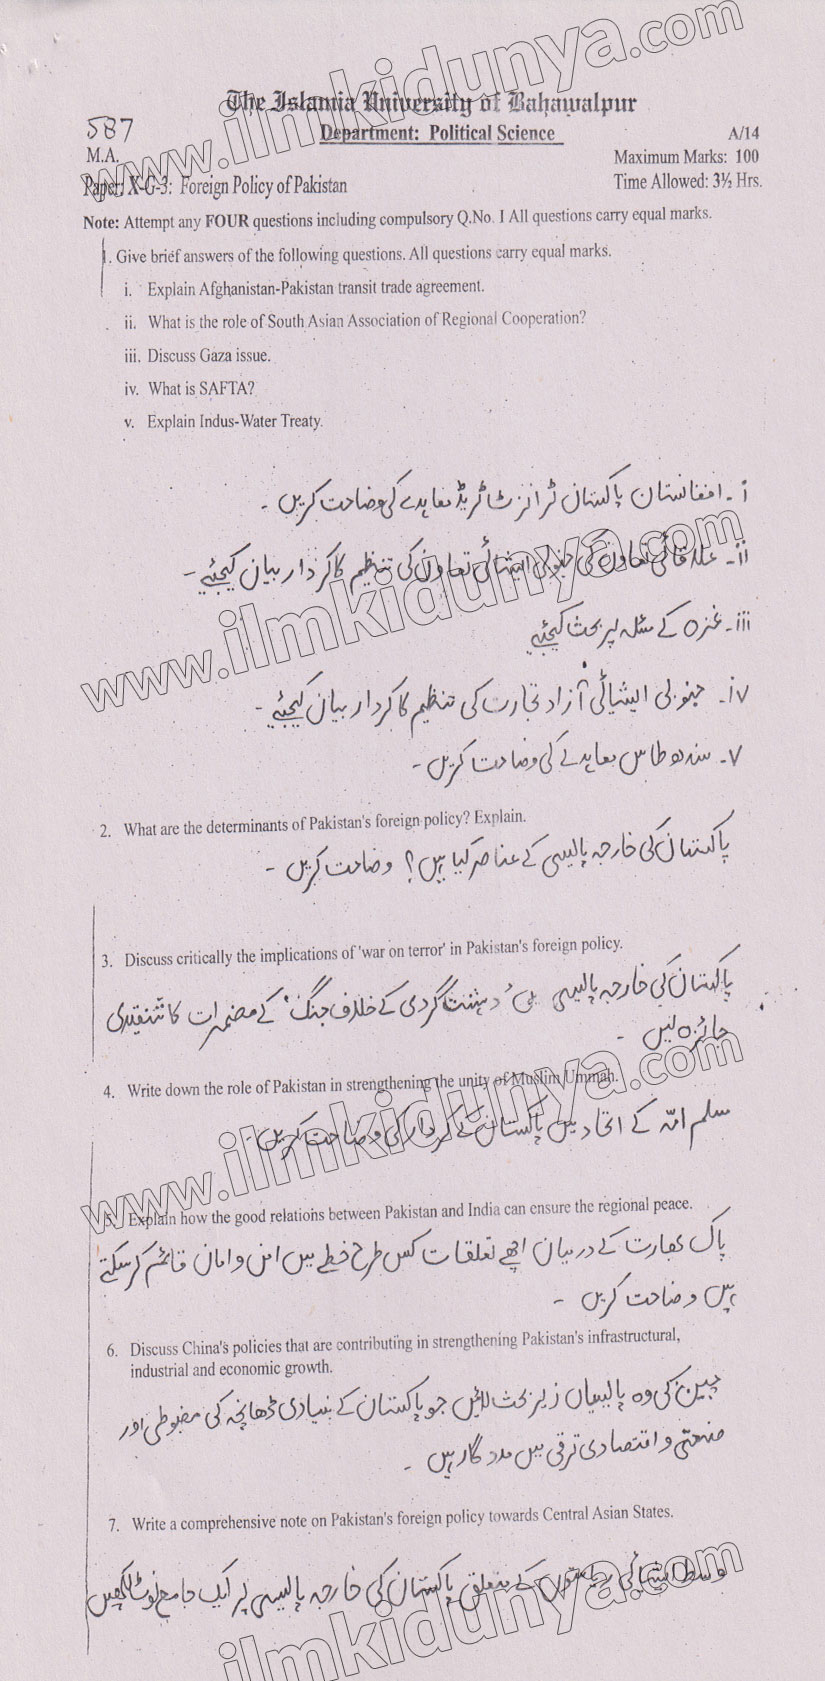 The Islamia University of Bahawalpur
587
Department: Political Science
A/14
M.A.
Maximum Marks: 100
Paper: X-G-3: Foreign Policy of Pakistan
Time Allowed: 3½ Hrs.
Note: Attempt any FOUR questions including compulsory Q.No. I All questions carry equal marks.
1. Give brief answers of the following questions. All questions carry equal marks.
i. Explain Afghanistan-Pakistan transit trade agreement.
ii. What is the role of South Asian Association of Regional Cooperation?
iii. Discuss Gaza issue.
iv. What is SAFTA?
v. Explain Indus-Water Treaty.
i۔ افغانستان پاکستان ٹرانزٹ ٹریڈ معاہدے کی وضاحت کریں۔
ii۔ علاقائی تعاون کی جنوبی ایشیائی تعاون کی تنظیم کا کردار بیان کیجئیے۔
iii۔ غزہ کے مسئلہ پر بحث کیجئیے
iv۔ جنوبی ایشیائی آزاد تجارت کی تنظیم کا کردار بیان کیجئیے۔
v۔ سندھ طاس معاہدے کی وضاحت کریں۔
2. What are the determinants of Pakistan's foreign policy? Explain.
پاکستان کی خارجہ پالیسی کے عناصر کیا ہیں؟ وضاحت کریں۔
3. Discuss critically the implications of 'war on terror' in Pakistan's foreign policy.
پاکستان کی خارجہ پالیسی میں 'دہشت گردی کے خلاف جنگ' کے مضمرات کا تنقیدی
جائزہ لیں۔
4. Write down the role of Pakistan in strengthening the unity of Muslim Ummah.
مسلم امّہ کے اتحاد میں پاکستان کے کردار کی وضاحت کریں۔
5. Explain how the good relations between Pakistan and India can ensure the regional peace.
پاک بھارت کے درمیان اچھے تعلقات کس طرح خطے میں امن و امان قائم کر سکتے
ہیں وضاحت کریں۔
6. Discuss China's policies that are contributing in strengthening Pakistan's infrastructural,
industrial and economic growth.
چین کی وہ پالیسیاں زیر بحث لائیں جو پاکستان کے بنیادی ڈھانچہ کی مضبوطی اور
صنعتی و اقتصادی ترقی میں مددگار ہیں۔
7. Write a comprehensive note on Pakistan's foreign policy towards Central Asian States.
وسط ایشیائی ریاستوں کے متعلق پاکستان کی خارجہ پالیسی پر ایک جامع نوٹ لکھیں
www.ilmkidunya.com
www.ilmkidunya.com
www.ilmkidunya.com
ilmkidunya.com